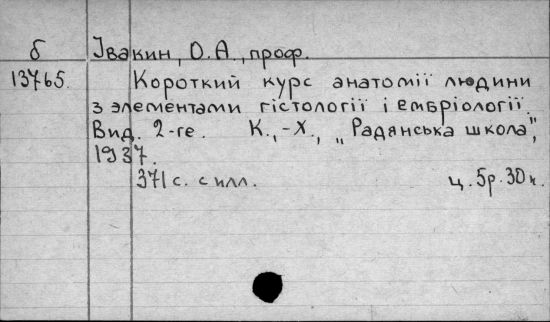 б Івакин, О.А., проф.
13765. Короткий курс анатомії людини
з элементами гістології і ембріології.
Вид. 2-ге. К., -Х., „Радянська школа",
1937.
371 с. с илл. ц. 5р. 30к.